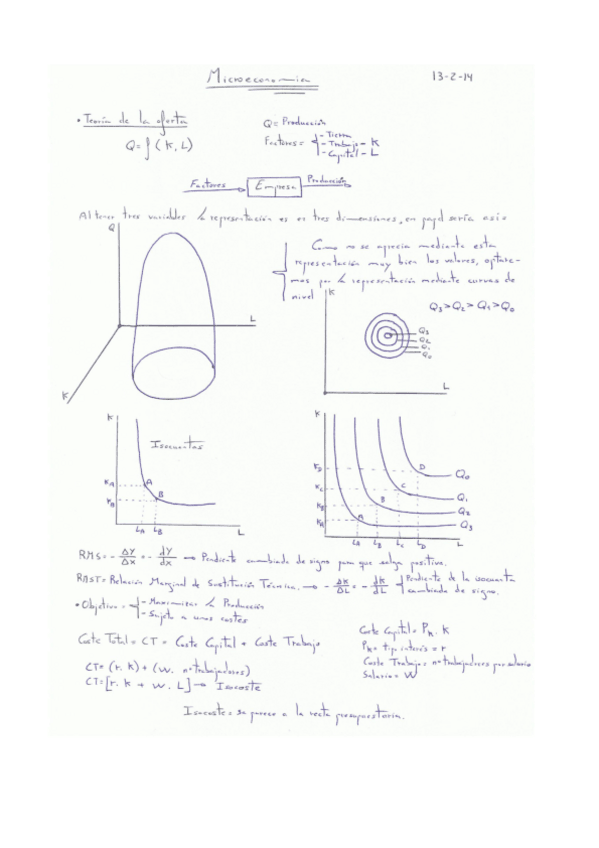 Microeconomia
13-2-14
• Teoría de la oferta
Q = f (K, L)
Q = Producción
Factores = - Tierra
- Trabajo - K
- Capital - L
Factores
Empresa
Producción
Al tener tres variables la representación es en tres dimensiones, en papel sería así:
Q
L
K
Como no se aprecia mediante esta
representación muy bien los valores, optare-
mos por la representación mediante curvas de
nivel
Q3 > Q2 > Q1 > Q0
K
Q3
Q2
Q1
Q0
L
K
Isocuantas
KA
A
KB
B
LA LB
L
K
KD
D
Q0
KC
C
Q1
KB
B
Q2
KA
A
Q3
LA LB LC LD
L
RMS = - ΔY/Δx = - dY/dx → Pendiente cambiada de signo para que salga positiva.
RMST = Relación Marginal de Sustitución Técnica. → - ΔK/ΔL = - dK/dL Pendiente de la isocuanta
cambiada de signo.
• Objetivo = - Maximizar la Producción
- Sujeto a unos costes
Coste Total = CT = Coste Capital + Coste Trabajo
Coste Capital = Pk . K
Pk = tip. interés = r
Coste Trabajo = nº trabajadores por salario
Salario = W
CT = (r. K) + (W. nº trabajadores)
CT = [r. K + W. L] → Isocoste
Isocoste = se parece a la recta presupuestaria.